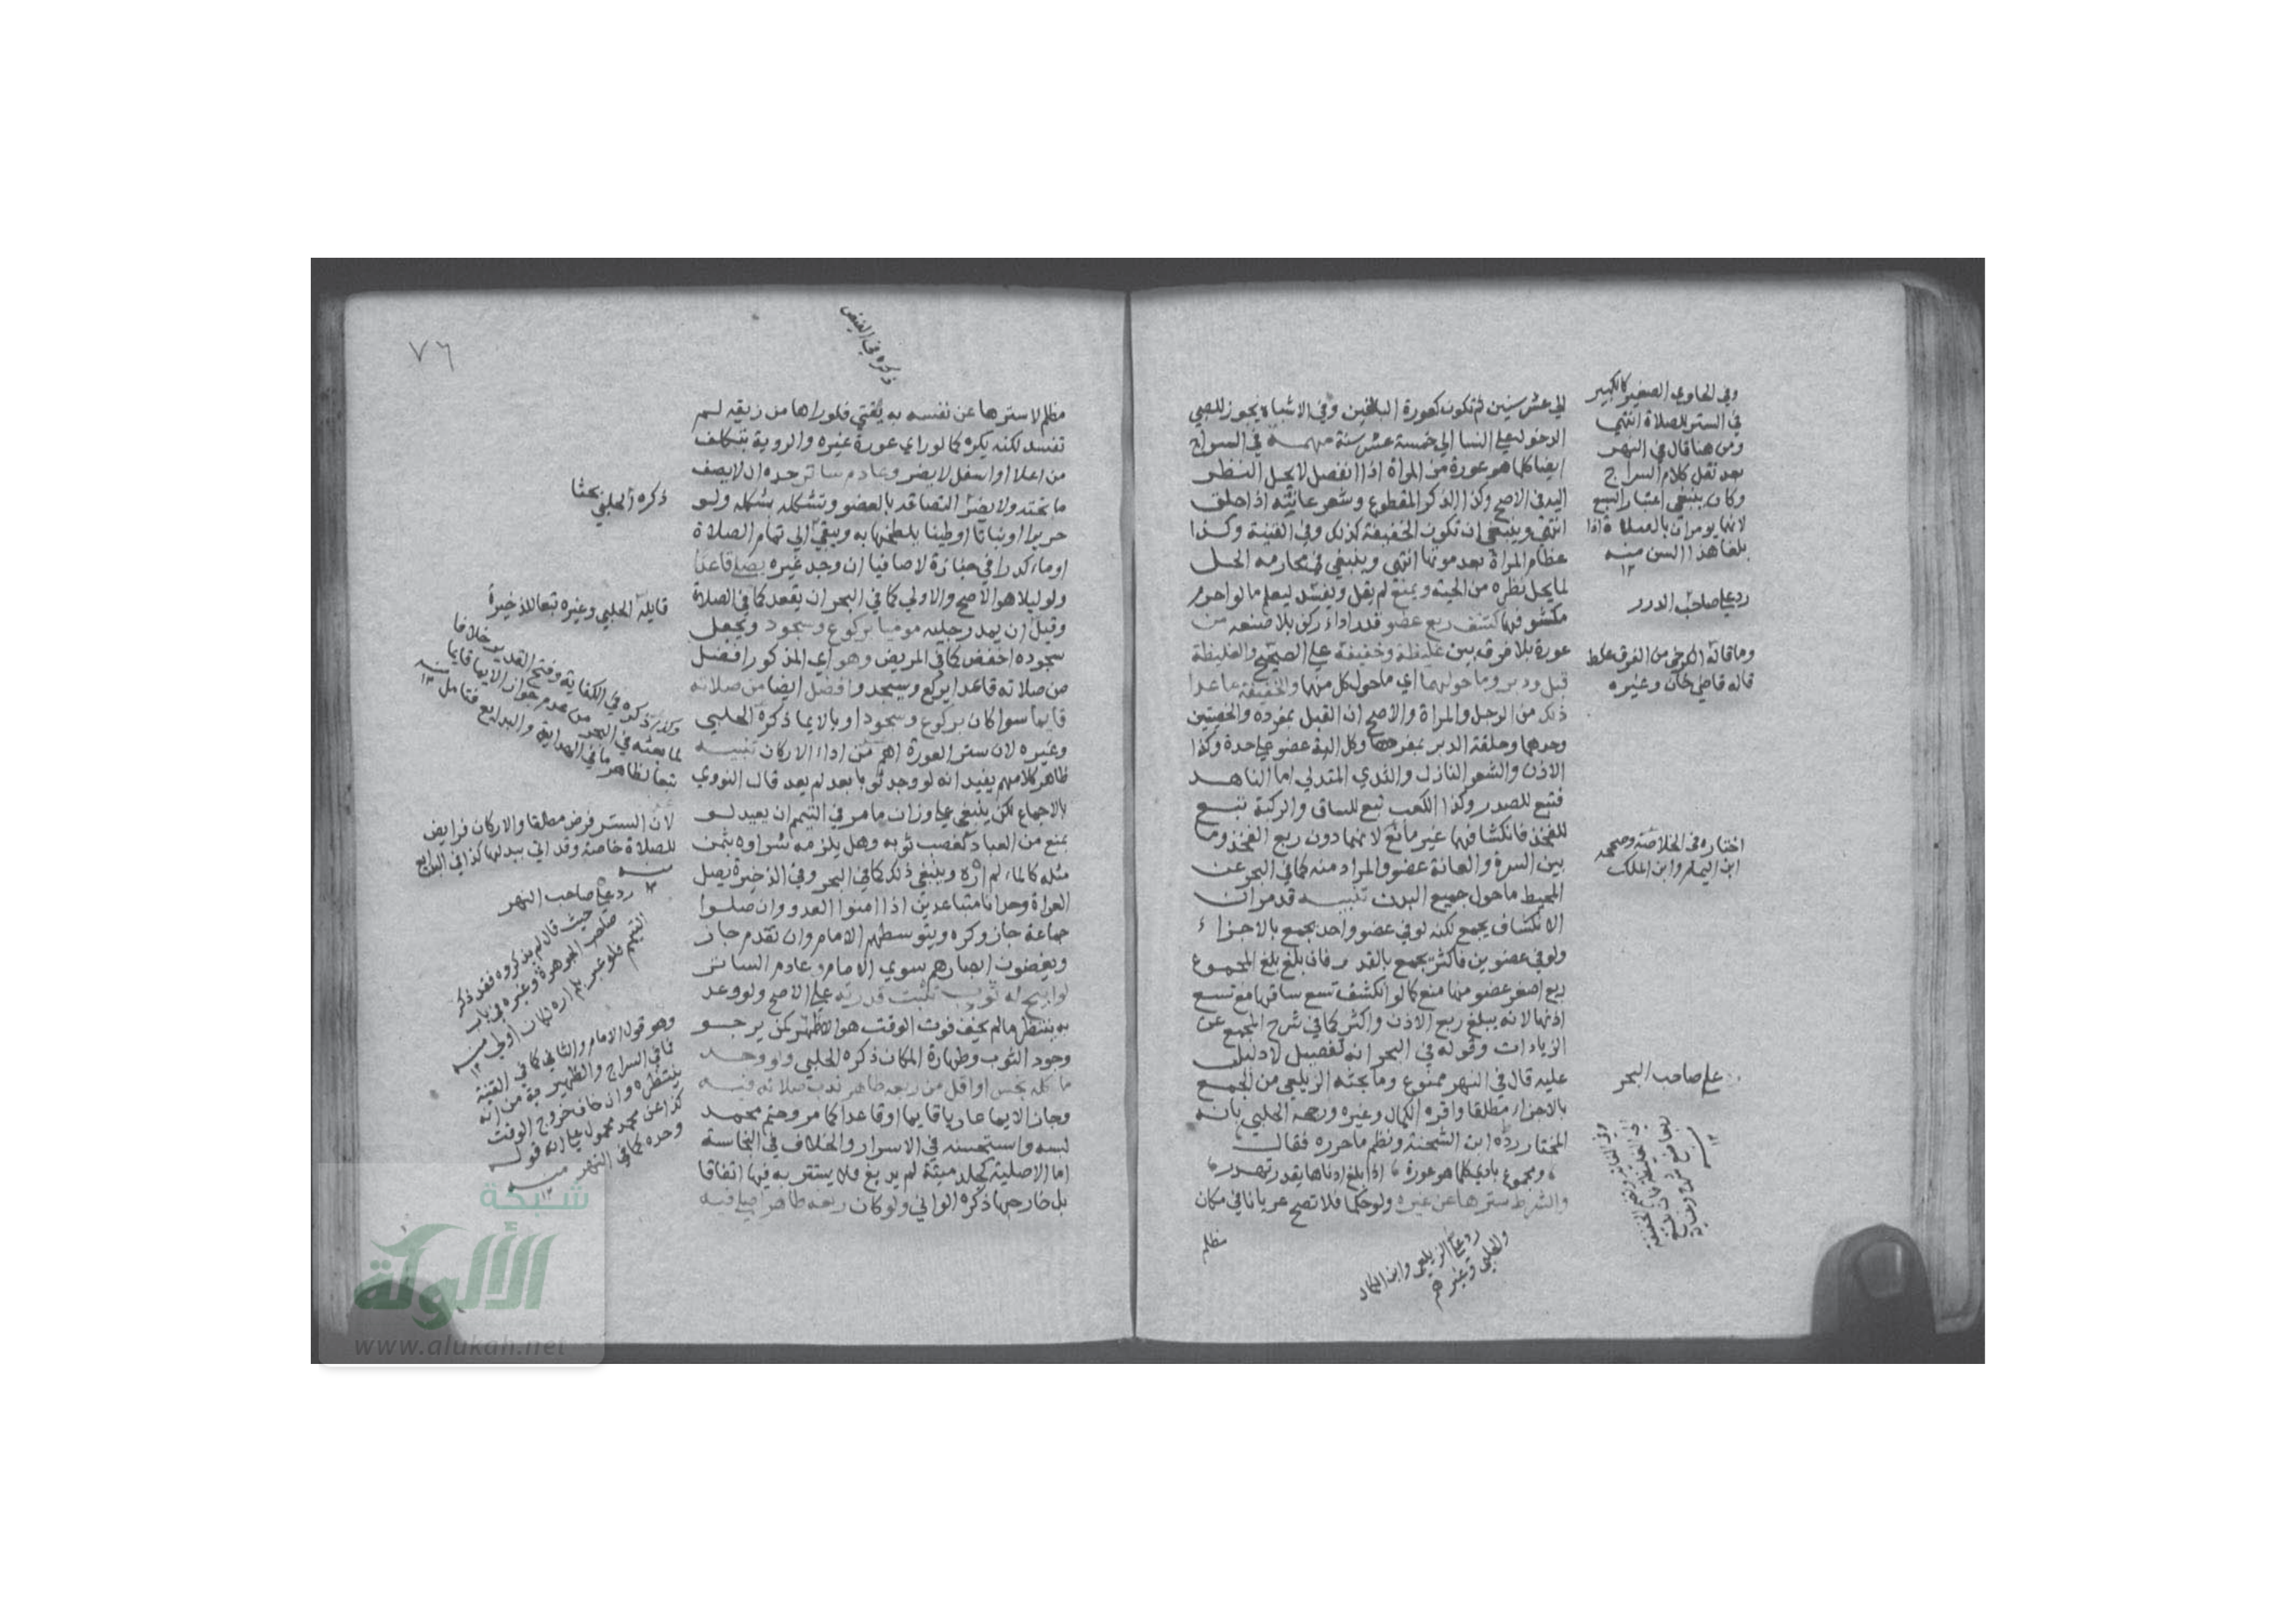 الي عشر سنين ثم تكون كعورة البالغين وفي الاشباه يجوز للصبي
الدخول علي النسا الي خمسة عشر سنة مهمة في السراج
ايضا كلما هو عورة من المراة اذا انفصل لا يحل النظر
اليه في الاصح وكذا الذكر المقطوع وشعر عانته اذا حلق
انتهي وينبغي ان تكون الخفيفة كذلك وفي القنية وكذا
عظام المراة بعد موتها انتهي وينبغي في محارمه الحل
لما يحل نظره من الحية ويمنع لم يقل ويفسد ليعم ما لو احرم
مكشوفها كشف ربع عضو قدر اداء ركن بلا صنعه من
عورة بلا فرق بين غليظة وخفيفة علي الصحيح والغليظة
قبل ودبر وما حولهما اي ما حول كل منهما والخفيفة ما عدا
ذلك من الرجل والمراة والاصح ان القبل بمفرده والخصيتين
وحدهما وحلقة الدبر بمفردها وكل الية عضو علي حدة وكذا
الاذن والشعر النازل والثدي المتدلي اما الناهد
فتبع للصدر وكذا الكعب تبع للساق والركبة تبع
للفخذ فانكشافها غير مانع لانها دون ربع الفخذ وما
بين السرة والعانة عضو والمراد منه كما في البحر عن
المحيط ما حول جميع البدن تنبيه قد مر ان
الانكشاف يجمع لكنه لو في عضو واحد يجمع بالاجزاء
ولو في عضوين فاكثر يجمع بالقدر فان بلغ بلغ المجموع
ربع اصغر عضو منها منع كما لو انكشف تسع ساقها مع تسع
اذنها لانه يبلغ ربع الاذن واكثر كما في شرح المجمع عن
الزيادات وقوله في البحر انه تفصيل لا دليل
عليه قال في النهر ممنوع وما بحثه الزيلعي من الجمع
بالاجزاء مطلقا واقره الكمال وغيره ورجحه الحلبي بانه
المختار رده ابن الشحنة ونظم ما حرره فقال
ومجموع بادي كلما هو عورة اذا بلغ ادناها يقدر
والشرط سترها عن غيره ولو حكما فلا تصح عريانا في مكان
مظلم
وفي الحاوي الصغير كالكبير
في الستر للصلاة انتهي
ومن هنا قال في النهر
بعد نقل كلام السراج
وكان ينبغي اعتبار السبع
لانهما يومران بالصلاة اذا
بلغا هذا السن منه
١٢
رد علي صاحب الدرر
وما قاله الكرخي من الفرق غلط
قاله قاضي خان وغيره
اختاره في الخلاصة وصححه
ابن الهمام وابن الملك
علي صاحب البحر
رد علي الزيلعي وابن الكمال
والحلبي وغيرهم
٧٦
ذكره في الفيض
مظلم لا سترها عن نفسه به يفتي فلو راها من زيقه لم
تفسد لكنه يكره كما لو راي عورة غيره والروية بتكلف
من اعلا او اسفل لا يضر وعادم ساتر حده ان لا يصف
ما تحته ولا يضر التصاقه بالعضو وتشكله بشكله ولو
حريرا او نباتا او طينا يلطخها به ويبقي الي تمام الصلاة
او ماء كدرا في جنازة لا صافيا ان وجد غيره يصلي قاعدا
ولو ليلا هو الاصح والاولي كما في البحر ان يقعد كما في الصلاة
وقيل ان يمد رجليه موميا بركوع وسجود ويجعل
سجوده اخفض كما في المريض وهو اي المذكور افضل
من صلاته قاعدا يركع ويسجد وافضل ايضا من صلاته
قايما سوا كان بركوع وسجود او بالايما ذكره الحلبي
وغيره لان ستر العورة اهم من اداء الاركان تنبيه
ظاهر كلامهم يفيد انه لو وجد ثوبا بعد لم يعد قال النووي
بالاجماع لكن ينبغي علي وزان ما مر في التيمم ان يعيد لو
بمنع من العباد كغصب ثوبه وهل يلزمه شراوه بثمن
مثله كالماء لم اره وينبغي ذلك كما في البحر وفي الذخيرة يصلي
العراة وحدانا متباعدين اذا امنوا العدو وان صلوا
جماعة جاز وكره ويتوسطهم الامام وان تقدم جاز
ويغضون ابصارهم سوي الامام وعادم الساتر
لو ابيح له ثوب ثبتت قدرته علي الاصح ولو وعد
به ينتظر ما لم يخف فوت الوقت هو الاظهر كمن يرجو
وجود الثوب وطهارة المكان ذكره الحلبي ولو وجد
ما كله نجس او اقل من ربعه طاهر ندب صلاته فيه
وجاز الايما عاريا قايما او قاعدا كما مر وحتم محمد
لبسه واستحسنه في الاسرار والخلاف في النجاسة
اما الاصلية كجلد ميتة لم يدبغ فلا يستتر به فيها اتفاقا
بل خارجها ذكره الواني ولو كان ربعه طاهرا صلي فيه
ذكره الحلبي بحثا
قايله الحلبي وغيره تبعا للذخيرة
وكذا ذكره في الكفاية وفتح القدير خلافا
لما بحثه في البحر من عدم جواز الايما قايما
تبعا لظاهر ما في الهداية والبدايع فتامل منه
١٢
لان الستر فرض مطلقا والاركان فرايض
للصلاة خاصة وقد اتي ببدلها كذا في البدايع
منه
١٢
رد علي صاحب النهر
حيث قال لم يذكروه فقد ذكر
صاحب الجوهرة وغيره في باب
التيمم فلو عبر بلم اره لكان اولي منه
١٢
وهو قول الامام والثاني كما في القنية
فما في السراج والظهيرية من انه
ينتظره وان خاف خروج الوقت
كذا عن محمد محمول علي انه قوله
وحده كما في النهر منه
١٢
شبكة
الألوكة
www.alukah.net